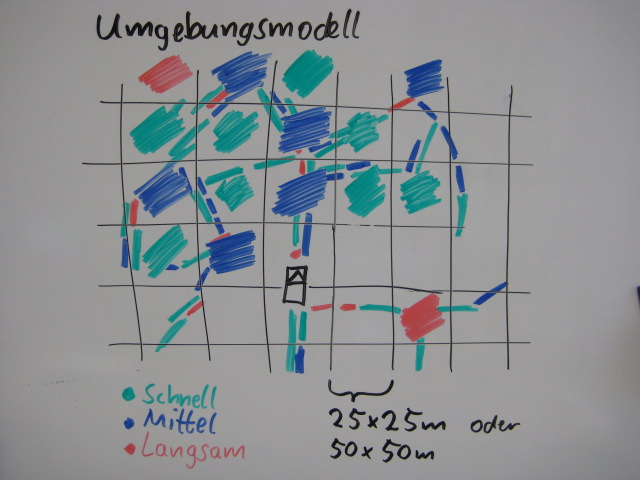 Umgebungsmodell
Schnell
Mittel
Langsam
25x25m oder
50x50m